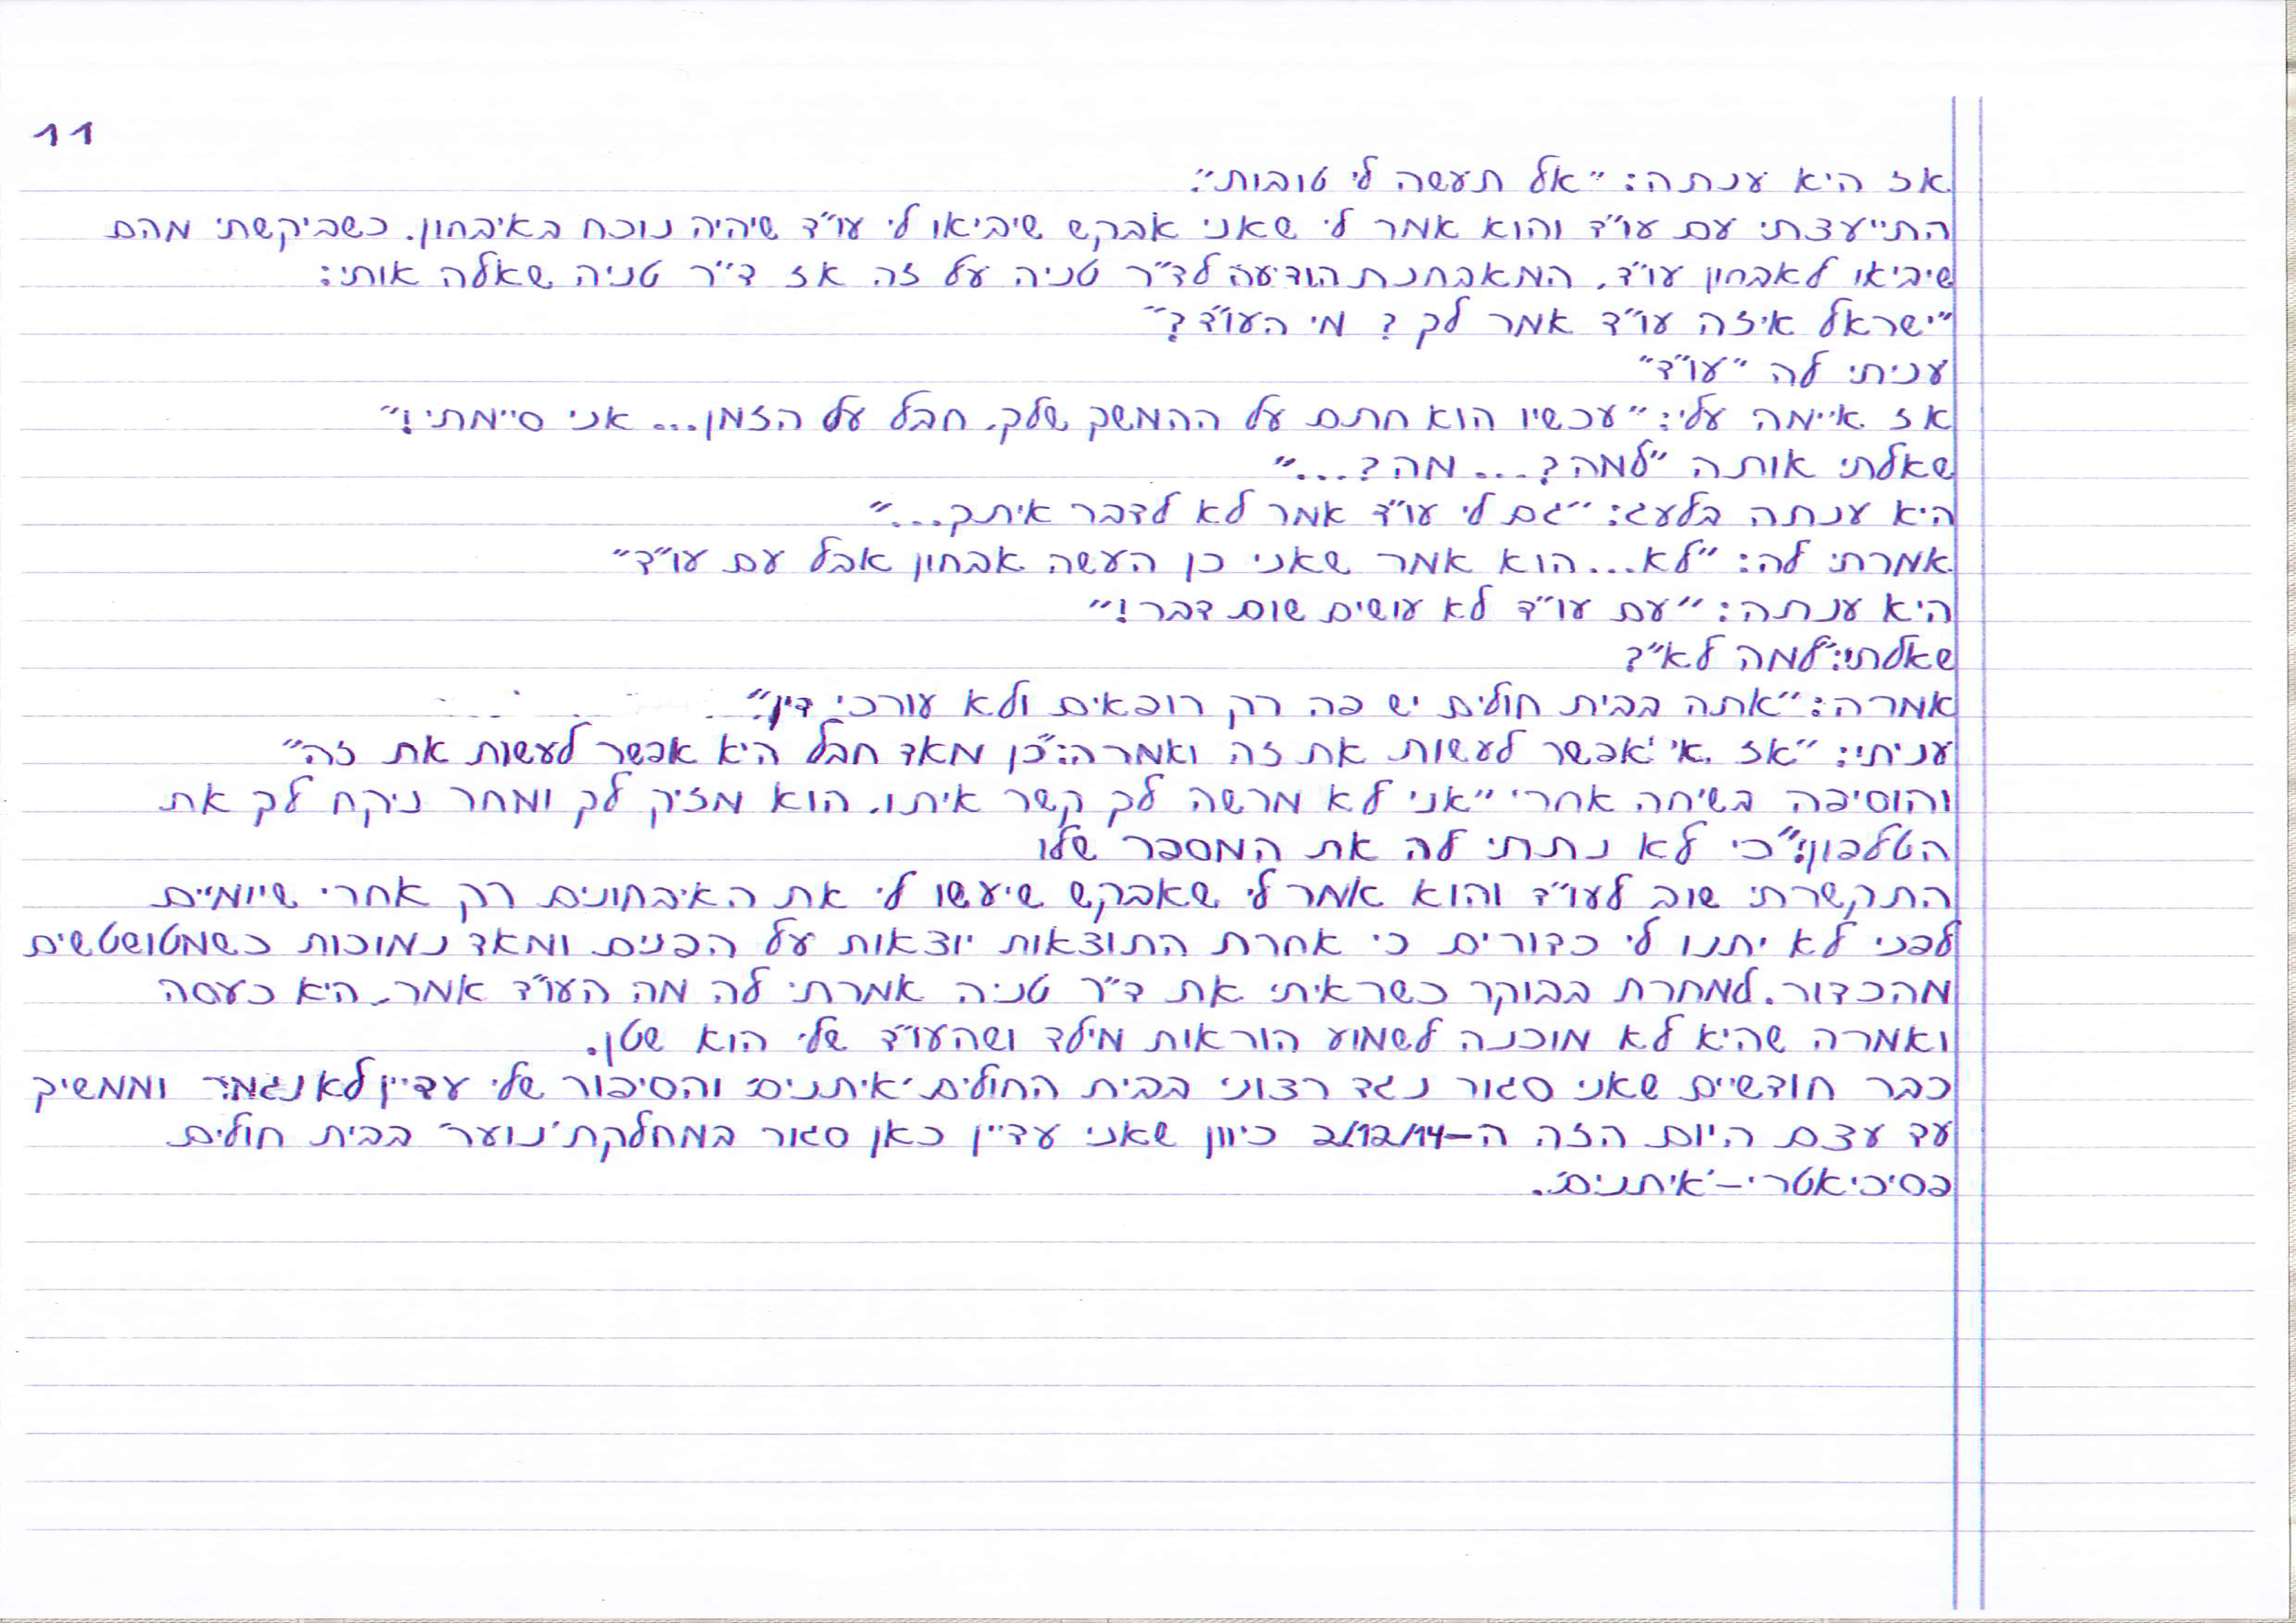 11
אז היא ענתה: "אל תעשה לי טובות".
התייעצתי עם עו"ד והוא אמר לי שאני אבקש שיביאו לי עו"ד שיהיה נוכח באיבחון. כשביקשתי מהם
שיביאו לאבחון עו"ד, המאבחנת הודיעה לד"ר טניה על זה אז ד"ר טניה שאלה אותי:
"ישראל איזה עו"ד אמר לך? מי העו"ד?"
עניתי לה "עו"ד"
אז איימה עלי: "עכשיו הוא חתם על ההמשך שלך. חבל על הזמן... אני סיימתי!"
שאלתי אותה "למה?... מה?..."
היא ענתה בלעג: "גם לי עו"ד אמר לא לדבר איתך..."
אמרתי לה: "לא... הוא אמר שאני כן העשה אבחון אבל עם עו"ד"
היא ענתה: "עם עו"ד לא עושים שום דבר!"
שאלתי: "למה לא"?
אמרה: "אתה בבית חולים יש פה רק רופאים ולא עורכי דין"
עניתי: "אז אי אפשר לעשות את זה ואמרה: "כן מאד חבל היא אפשר לעשות את זה"
והוסיפה בשיחה אחרי "אני לא מרשה לך קשר איתו. הוא מזיק לך ומחר ניקח לך את
הטלפון!" כי לא נתתי לה את המספר שלו
התקשרתי שוב לעו"ד והוא אמר לי שאבקש שיעשו לי את האיבחונים רק אחרי שיומיים
לפני לא יתנו לי כדורים כי אחרת התוצאות יוצאות על הפנים ומאד נמוכות כשמטושטשים
מהכדור. למחרת בבוקר כשראיתי את ד"ר טניה אמרתי לה מה העו"ד אמר. היא כעסה
ואמרה שהיא לא מוכנה לשמוע הוראות מילד ושהעו"ד שלי הוא שטן.
כבר חודשיים שאני סגור נגד רצוני בבית החולים 'איתנים' והסיפור שלי עדיין לא נגמר וממשיך
עד עצם היום הזה ה-2/12/14 כיוון שאני עדיין כאן סגור במחלקת 'נוער' בבית חולים
פסיכיאטרי - 'איתנים'.